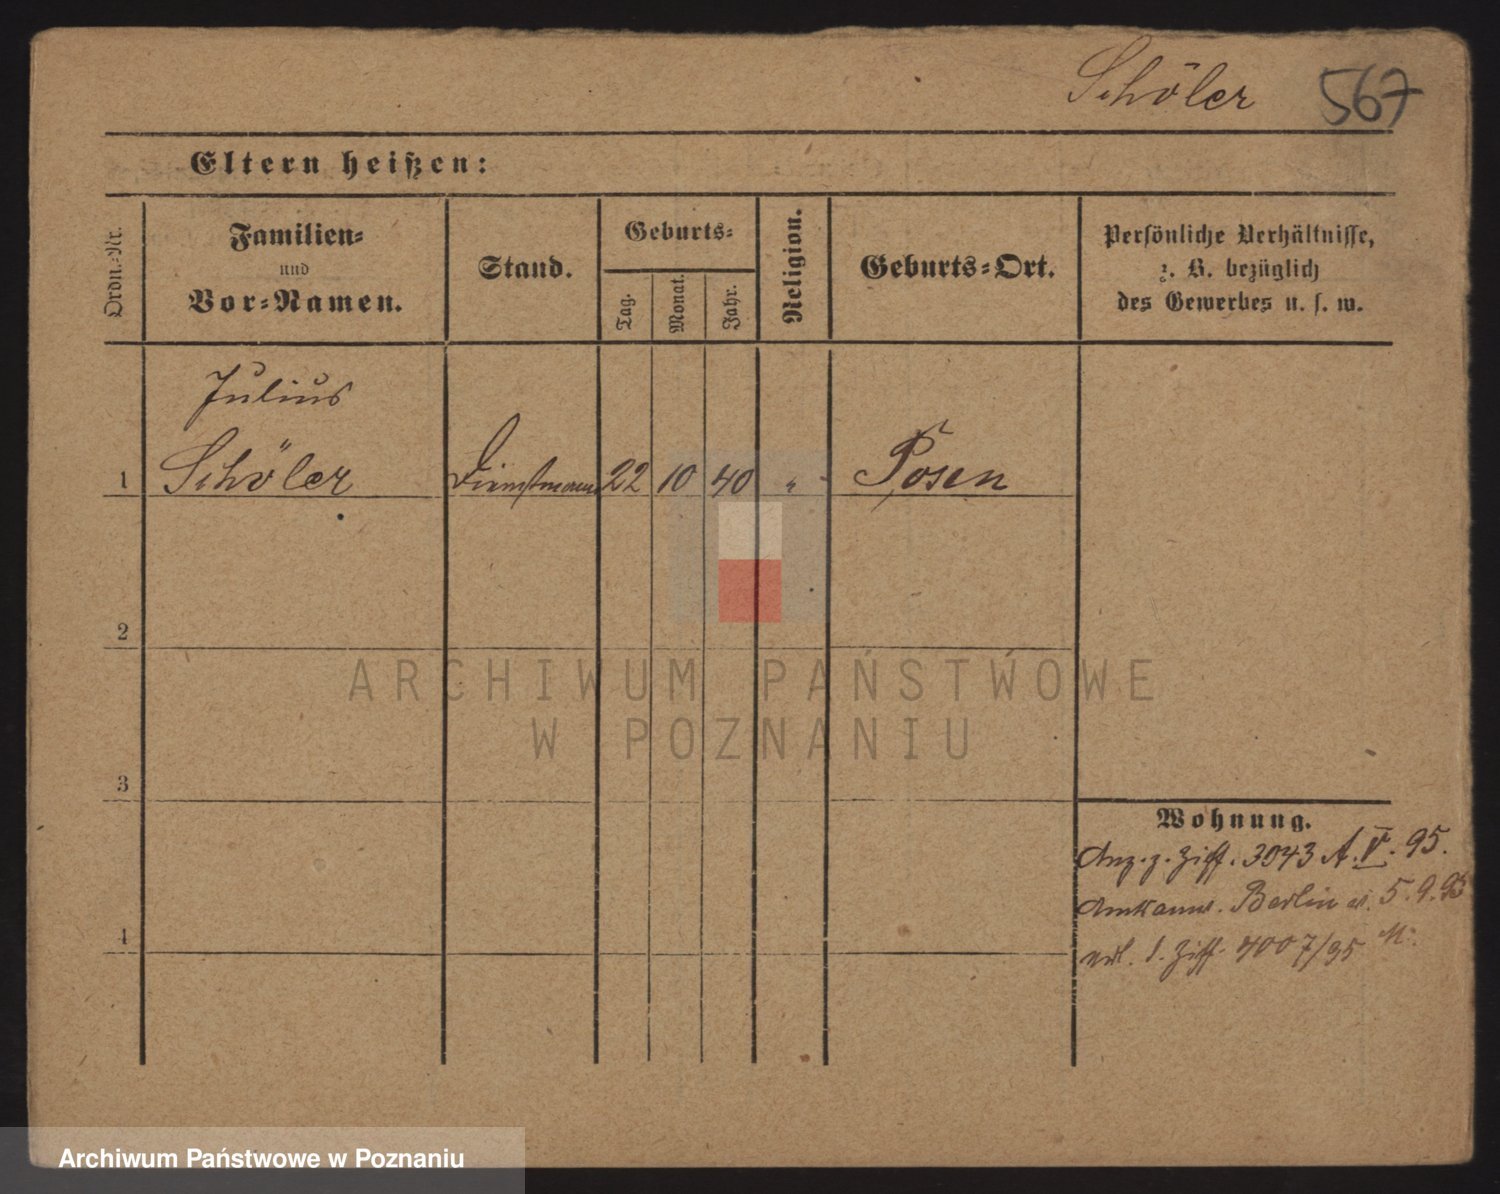 Schöler 567
Eltern heißen:
Ordn.-Nr.
Familien-
und
Vor-Namen.
Stand.
Geburts-
Tag.
Monat.
Jahr.
Religion.
Geburts-Ort.
Persönliche Verhältnisse,
z. B. bezüglich
des Gewerbes u. s. w.
Julius
1 Schöler Dienstmann 22 10 40 " Posen
2
3
4
Wohnung.
Anz. z. Ziff. 3043 A. V. 95.
Berlin 5. 9. 95
Ziff. 4007/95
ARCHIWUM PAŃSTWOWE
W POZNANIU
Archiwum Państwowe w Poznaniu